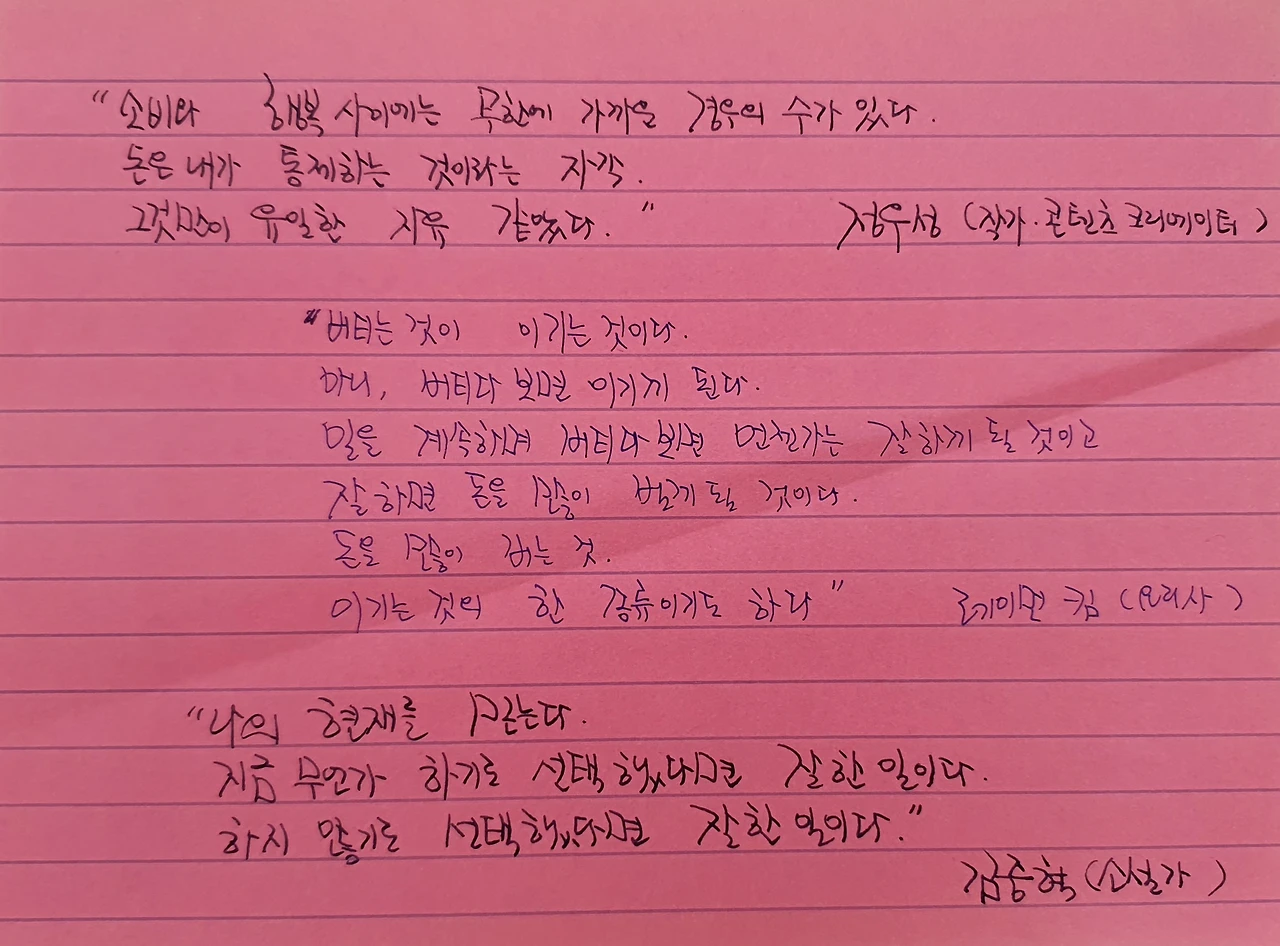 "소비와 행복 사이에는 무한에 가까운 경우의 수가 있다.
돈은 내가 통제하는 것이라는 자각.
그것만이 유일한 자유 같았다."
정우성 (작가·콘텐츠 크리에이터)
"버티는 것이 이기는 것이다.
아니, 버티다 보면 이기게 된다.
일을 계속하며 버티다 보면 언젠가는 잘하게 될 것이고
잘하면 돈을 많이 벌게 될 것이다.
돈을 많이 버는 것.
이기는 것의 한 종류이기도 하다"
레이먼 킴 (요리사)
"나의 현재를 믿는다.
지금 무언가 하기로 선택했다면 잘한 일이다.
하지 않기로 선택했다면 잘한 일이다."
김중혁 (소설가)